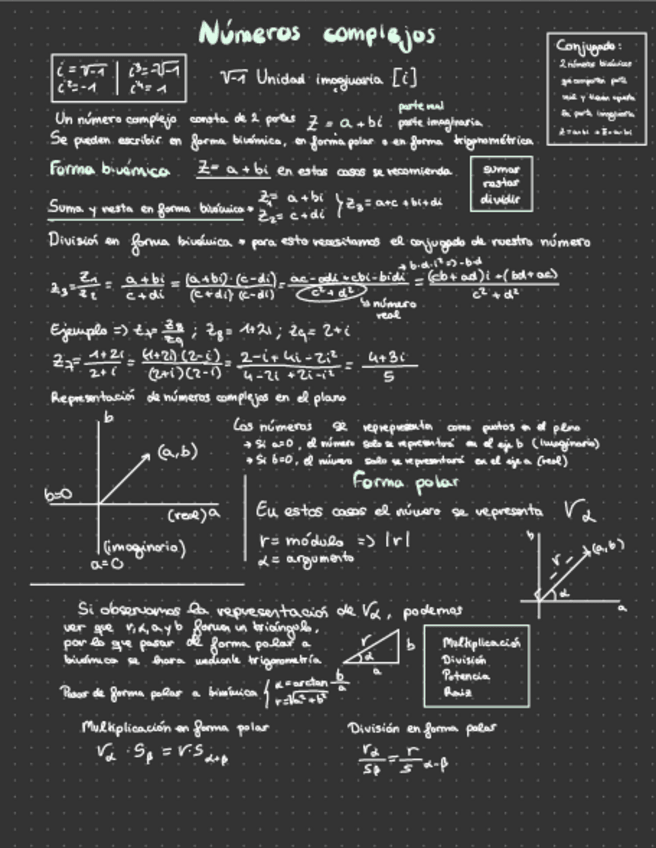 Números complejos
i = √-1 | i³=-√-1
i²=-1 | i⁴= 1
√-1 Unidad imaginaria [i]
Conjugado:
2 números binómicos
que comparten parte
real y tienen opuesta
la parte imaginaria
z=a+bi → z̄=a-bi
Un número complejo consta de 2 partes Z = a + bi
parte real
parte imaginaria
Se pueden escribir en forma binómica, en forma polar o en forma trigonométrica
Forma binómica Z = a + bi en estos casos se recomienda
sumar
restar
dividir
Suma y resta en forma binómica •
Z₁= a+bi
Z₂= c+di
} Z₃ = a+c +bi+di
División en forma binómica • para esto necesitamos el conjugado de nuestro número
→ b·d·i² => -b·d
Z₃ = Z₁/Z₂ = (a+bi)/(c+di) = (a+bi)·(c-di)/(c+di)·(c-di) = (ac-adi+cbi-bidi)/(c²+d²) = ((cb+ad)i+(bd+ac))/(c²+d²)
↳ número
real
Ejemplo => Z₇= Z₈/Z₉ ; Z₈= 1+2i ; Z₉= 2+i
Z₇= (1+2i)/(2+i) = (1+2i)(2-i)/(2+i)(2-i) = (2-i+4i-2i²)/(4-2i+2i-i²) = (4+3i)/5
Representación de números complejos en el plano
b
(a,b)
b=0
(real) a
(imaginario)
a=0
Los números se reprepresenta como puntos en el plano
→ Si a=0, el número solo se representará en el eje b (imaginario)
→ Si b=0, el número solo se representará en el eje a (real)
Forma polar
En estos casos el número se representa r_α
r = módulo => |r|
α = argumento
b
(a,b)
r
α
a
Si observamos la representación de r_α, podemos
ver que r,α,a,y b forman un triángulo,
por lo que pasar de forma polar a
binómica se hara mediante trigonometría
r
b
α
a
Multiplicación
División
Potencia
Raiz
Pasar de forma polar a binómica { α=arctan b/a
r=√a²+b²
Multiplicación en forma polar
r_α · S_β = r·S_α+β
División en forma polar
r_α/s_β = r/s _α-β